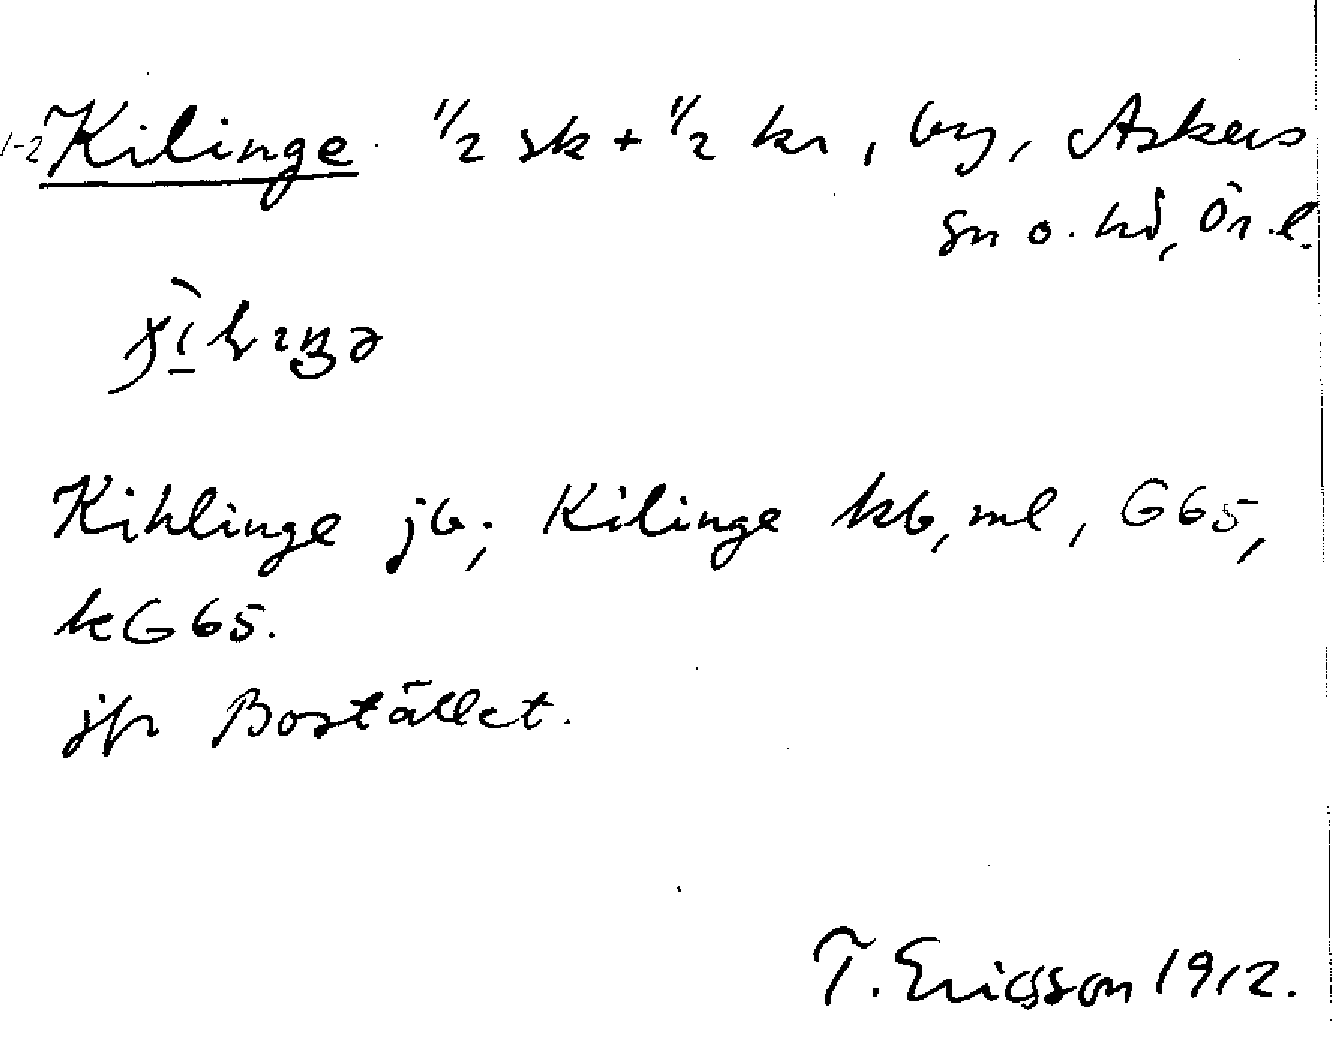 1-2 Kilinge 1/2 sk + 1/2 kr, by, Askers
sn o. hd, Ör. l.
Kihlinge jb; Kilinge kb, ml, G65,
kG65.
jfr Bostället.
T. Ericsson 1912.